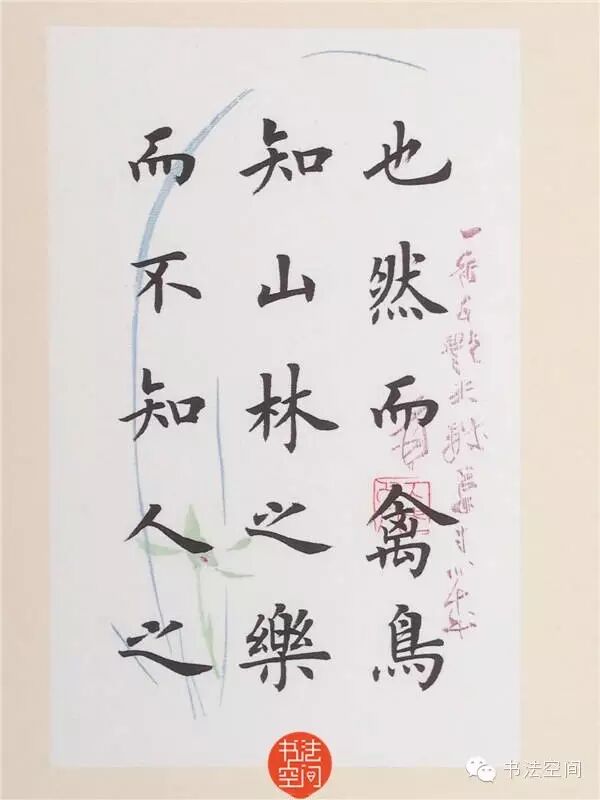 也然而禽鳥
知山林之樂
而不知人之
书法空间
书法空间